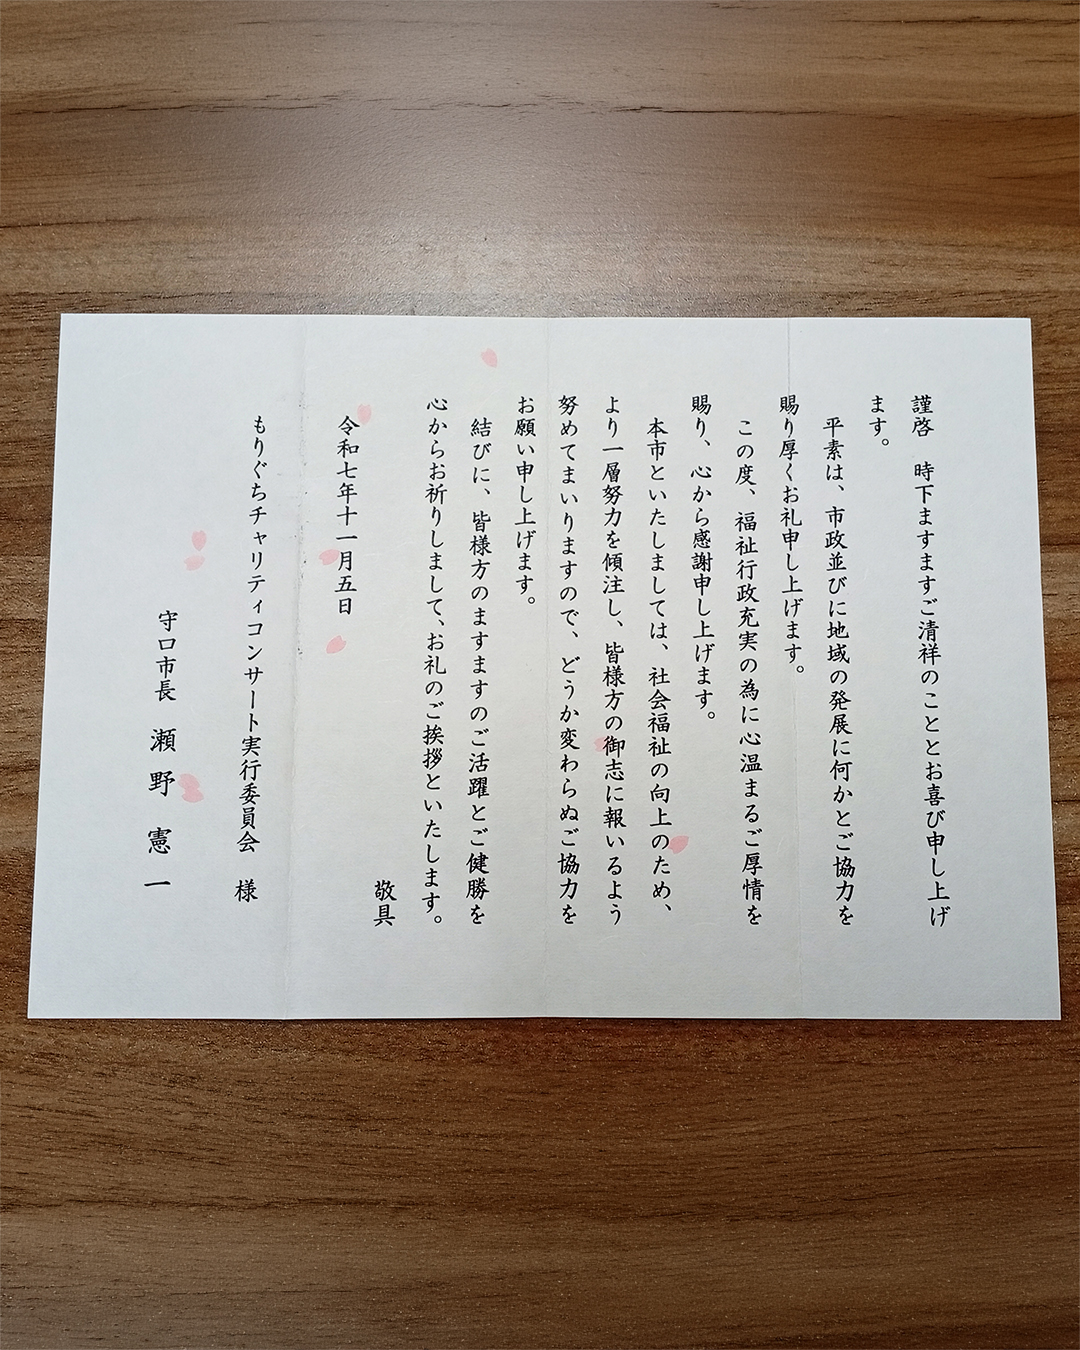 謹啓　時下ますますご清祥のこととお喜び申し上げ
ます。
平素は、市政並びに地域の発展に何かとご協力を
賜り厚くお礼申し上げます。
この度、福祉行政充実の為に心温まるご厚情を
賜り、心から感謝申し上げます。
本市といたしましては、社会福祉の向上のため、
より一層努力を傾注し、皆様方の御志に報いるよう
努めてまいりますので、どうか変わらぬご協力を
お願い申し上げます。
結びに、皆様方のますますのご活躍とご健勝を
心からお祈りしまして、お礼のご挨拶といたします。
敬具
令和七年十一月五日
もりぐちチャリティコンサート実行委員会　様
守口市長　瀬野　憲一